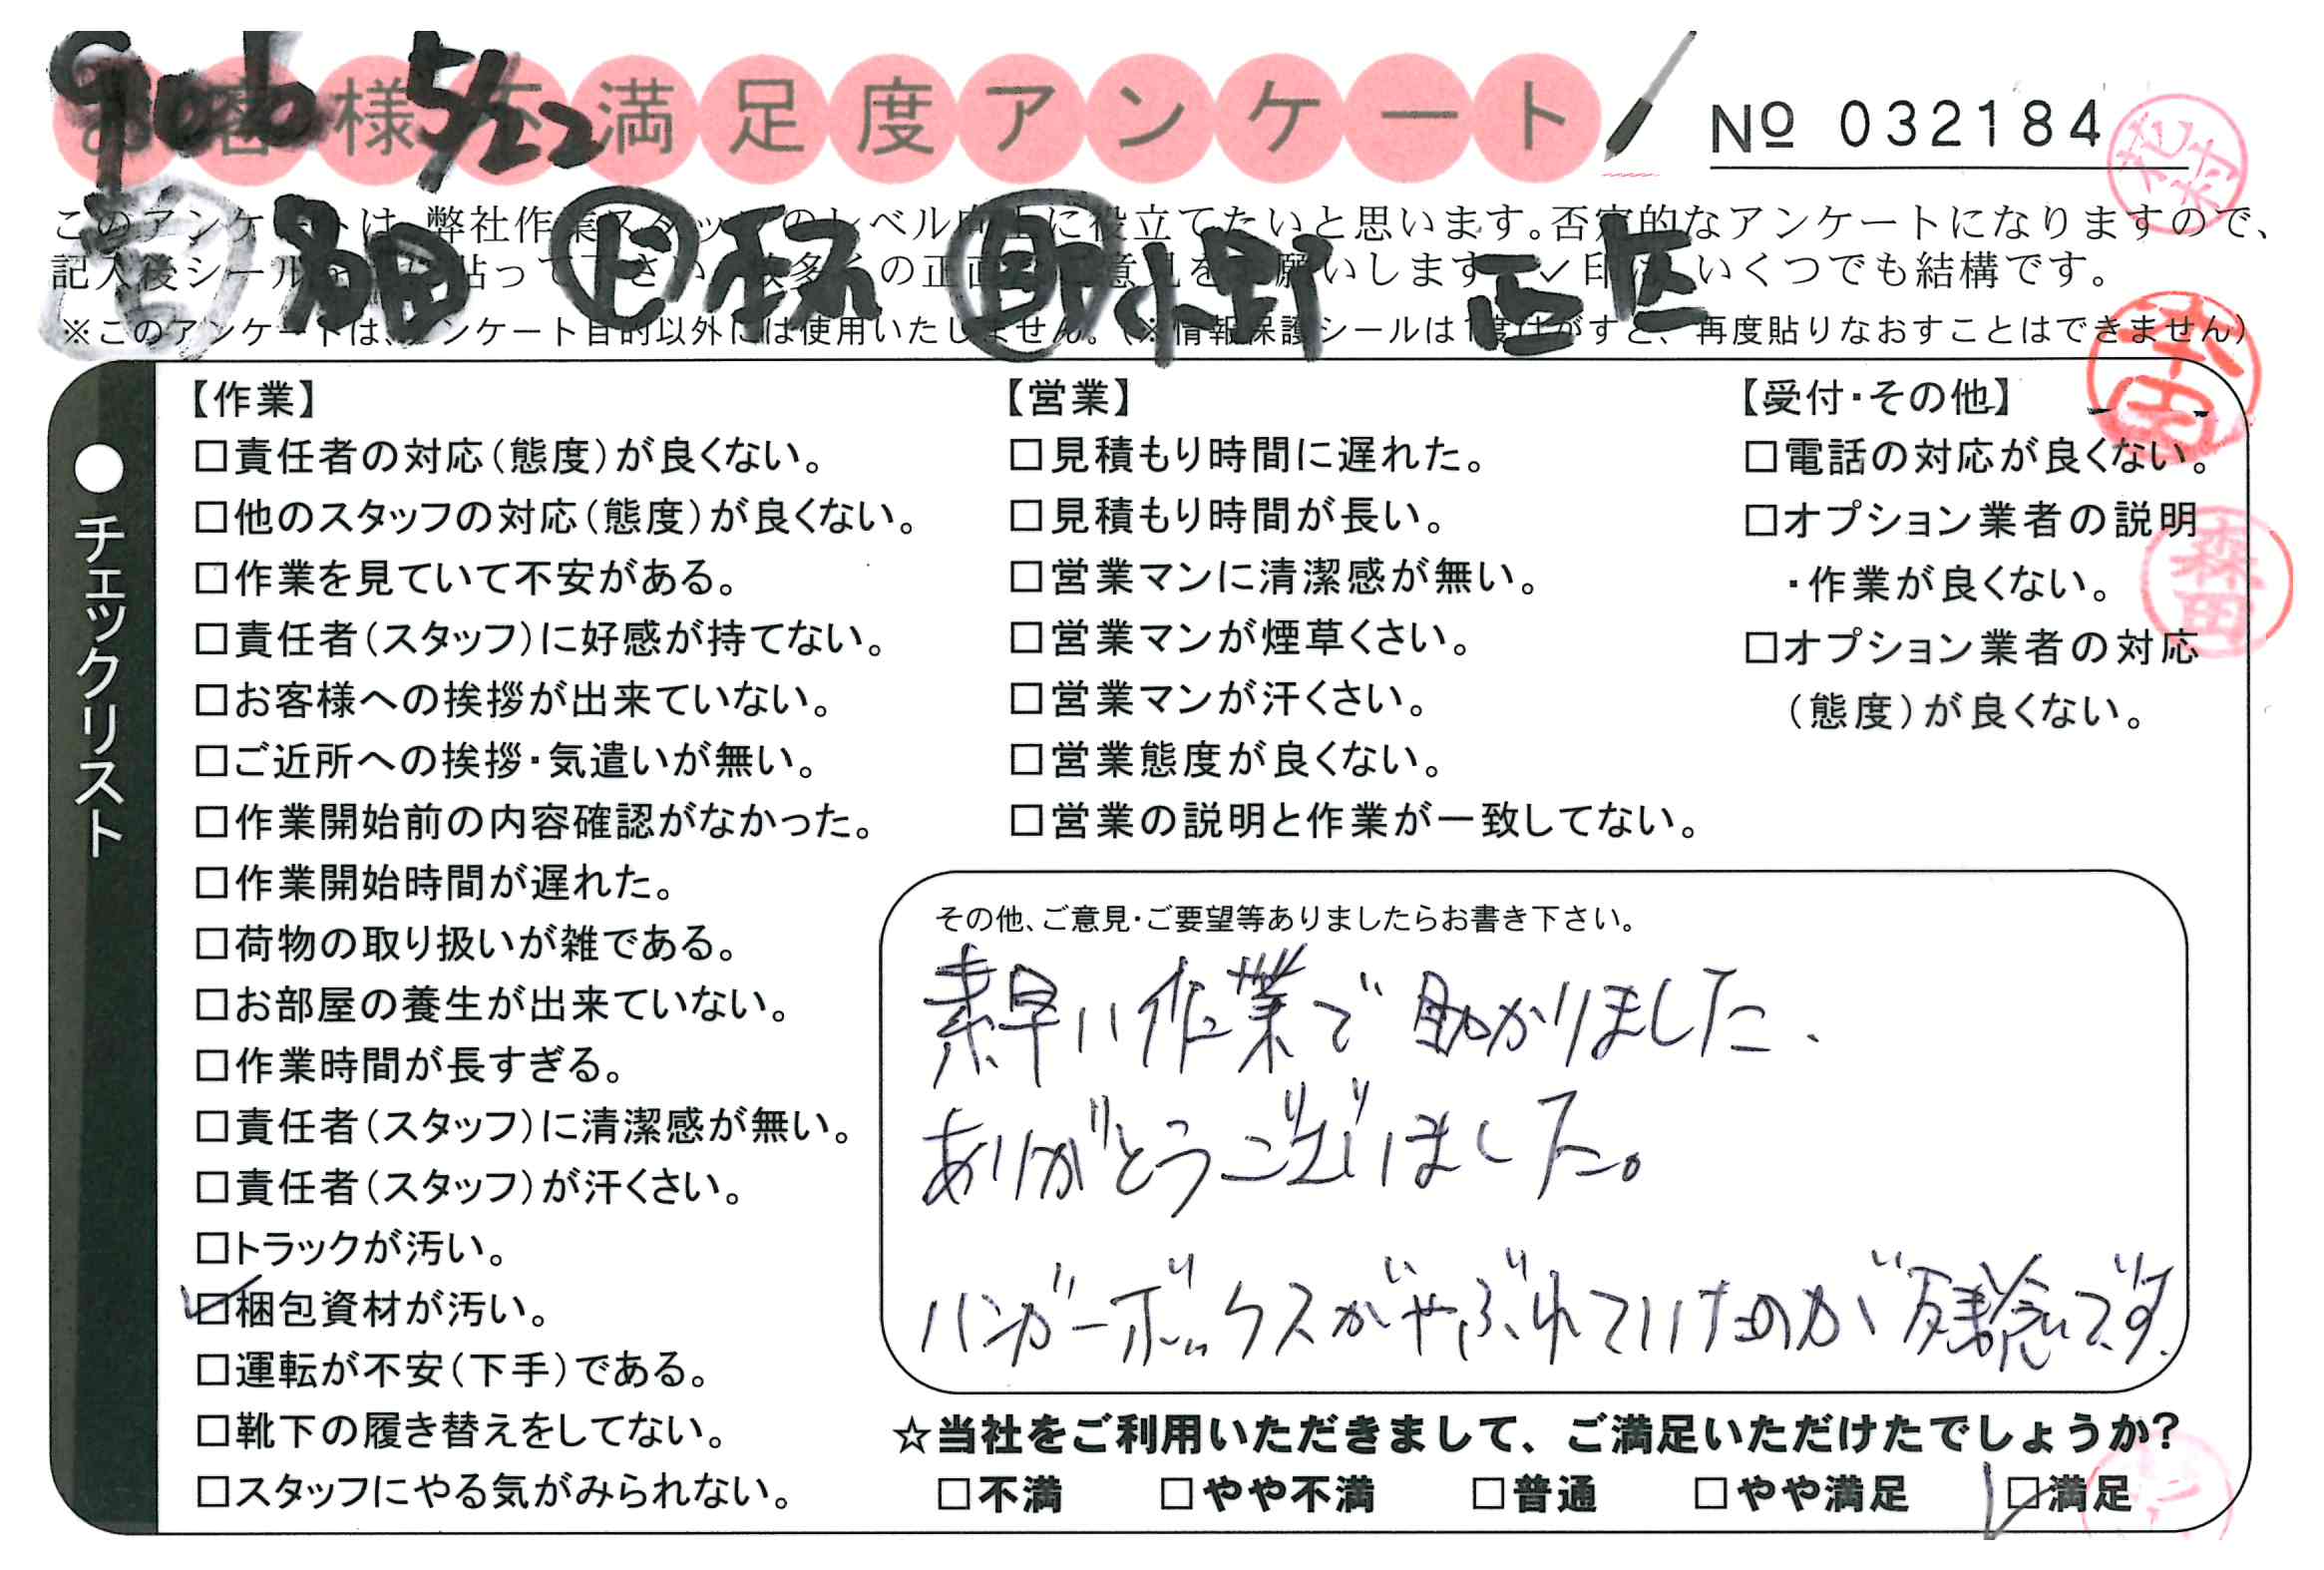 お客様不満足度アンケート
5/22
No 032184
このアンケートは、弊社作業スタッフのレベル向上に役立てたいと思います。否定的なアンケートになりますので、
記入後シールを 貼って下さい。 の正直 意見を 願いします ✓印は いくつでも結構です。
※このアンケートは、アンケート目的以外には使用いたしません。(※情報保護シールは1度はがすと、再度貼りなおすことはできません)
小野
●チェックリスト
【作業】
□責任者の対応(態度)が良くない。
□他のスタッフの対応(態度)が良くない。
□作業を見ていて不安がある。
□責任者(スタッフ)に好感が持てない。
□お客様への挨拶が出来ていない。
□ご近所への挨拶・気遣いが無い。
□作業開始前の内容確認がなかった。
□作業開始時間が遅れた。
□荷物の取り扱いが雑である。
□お部屋の養生が出来ていない。
□作業時間が長すぎる。
□責任者(スタッフ)に清潔感が無い。
□責任者(スタッフ)が汗くさい。
□トラックが汚い。
☑梱包資材が汚い。
□運転が不安(下手)である。
□靴下の履き替えをしてない。
□スタッフにやる気がみられない。
【営業】
□見積もり時間に遅れた。
□見積もり時間が長い。
□営業マンに清潔感が無い。
□営業マンが煙草くさい。
□営業マンが汗くさい。
□営業態度が良くない。
□営業の説明と作業が一致してない。
【受付・その他】
□電話の対応が良くない。
□オプション業者の説明
・作業が良くない。
□オプション業者の対応
(態度)が良くない。
森田
その他、ご意見・ご要望等ありましたらお書き下さい。
素早い作業で助かりました、
ありがとうございました。
ハンガーボックスがやぶれていたのが残念です。
☆当社をご利用いただきまして、ご満足いただけたでしょうか?
□不満 □やや不満 □普通 □やや満足 ☑満足